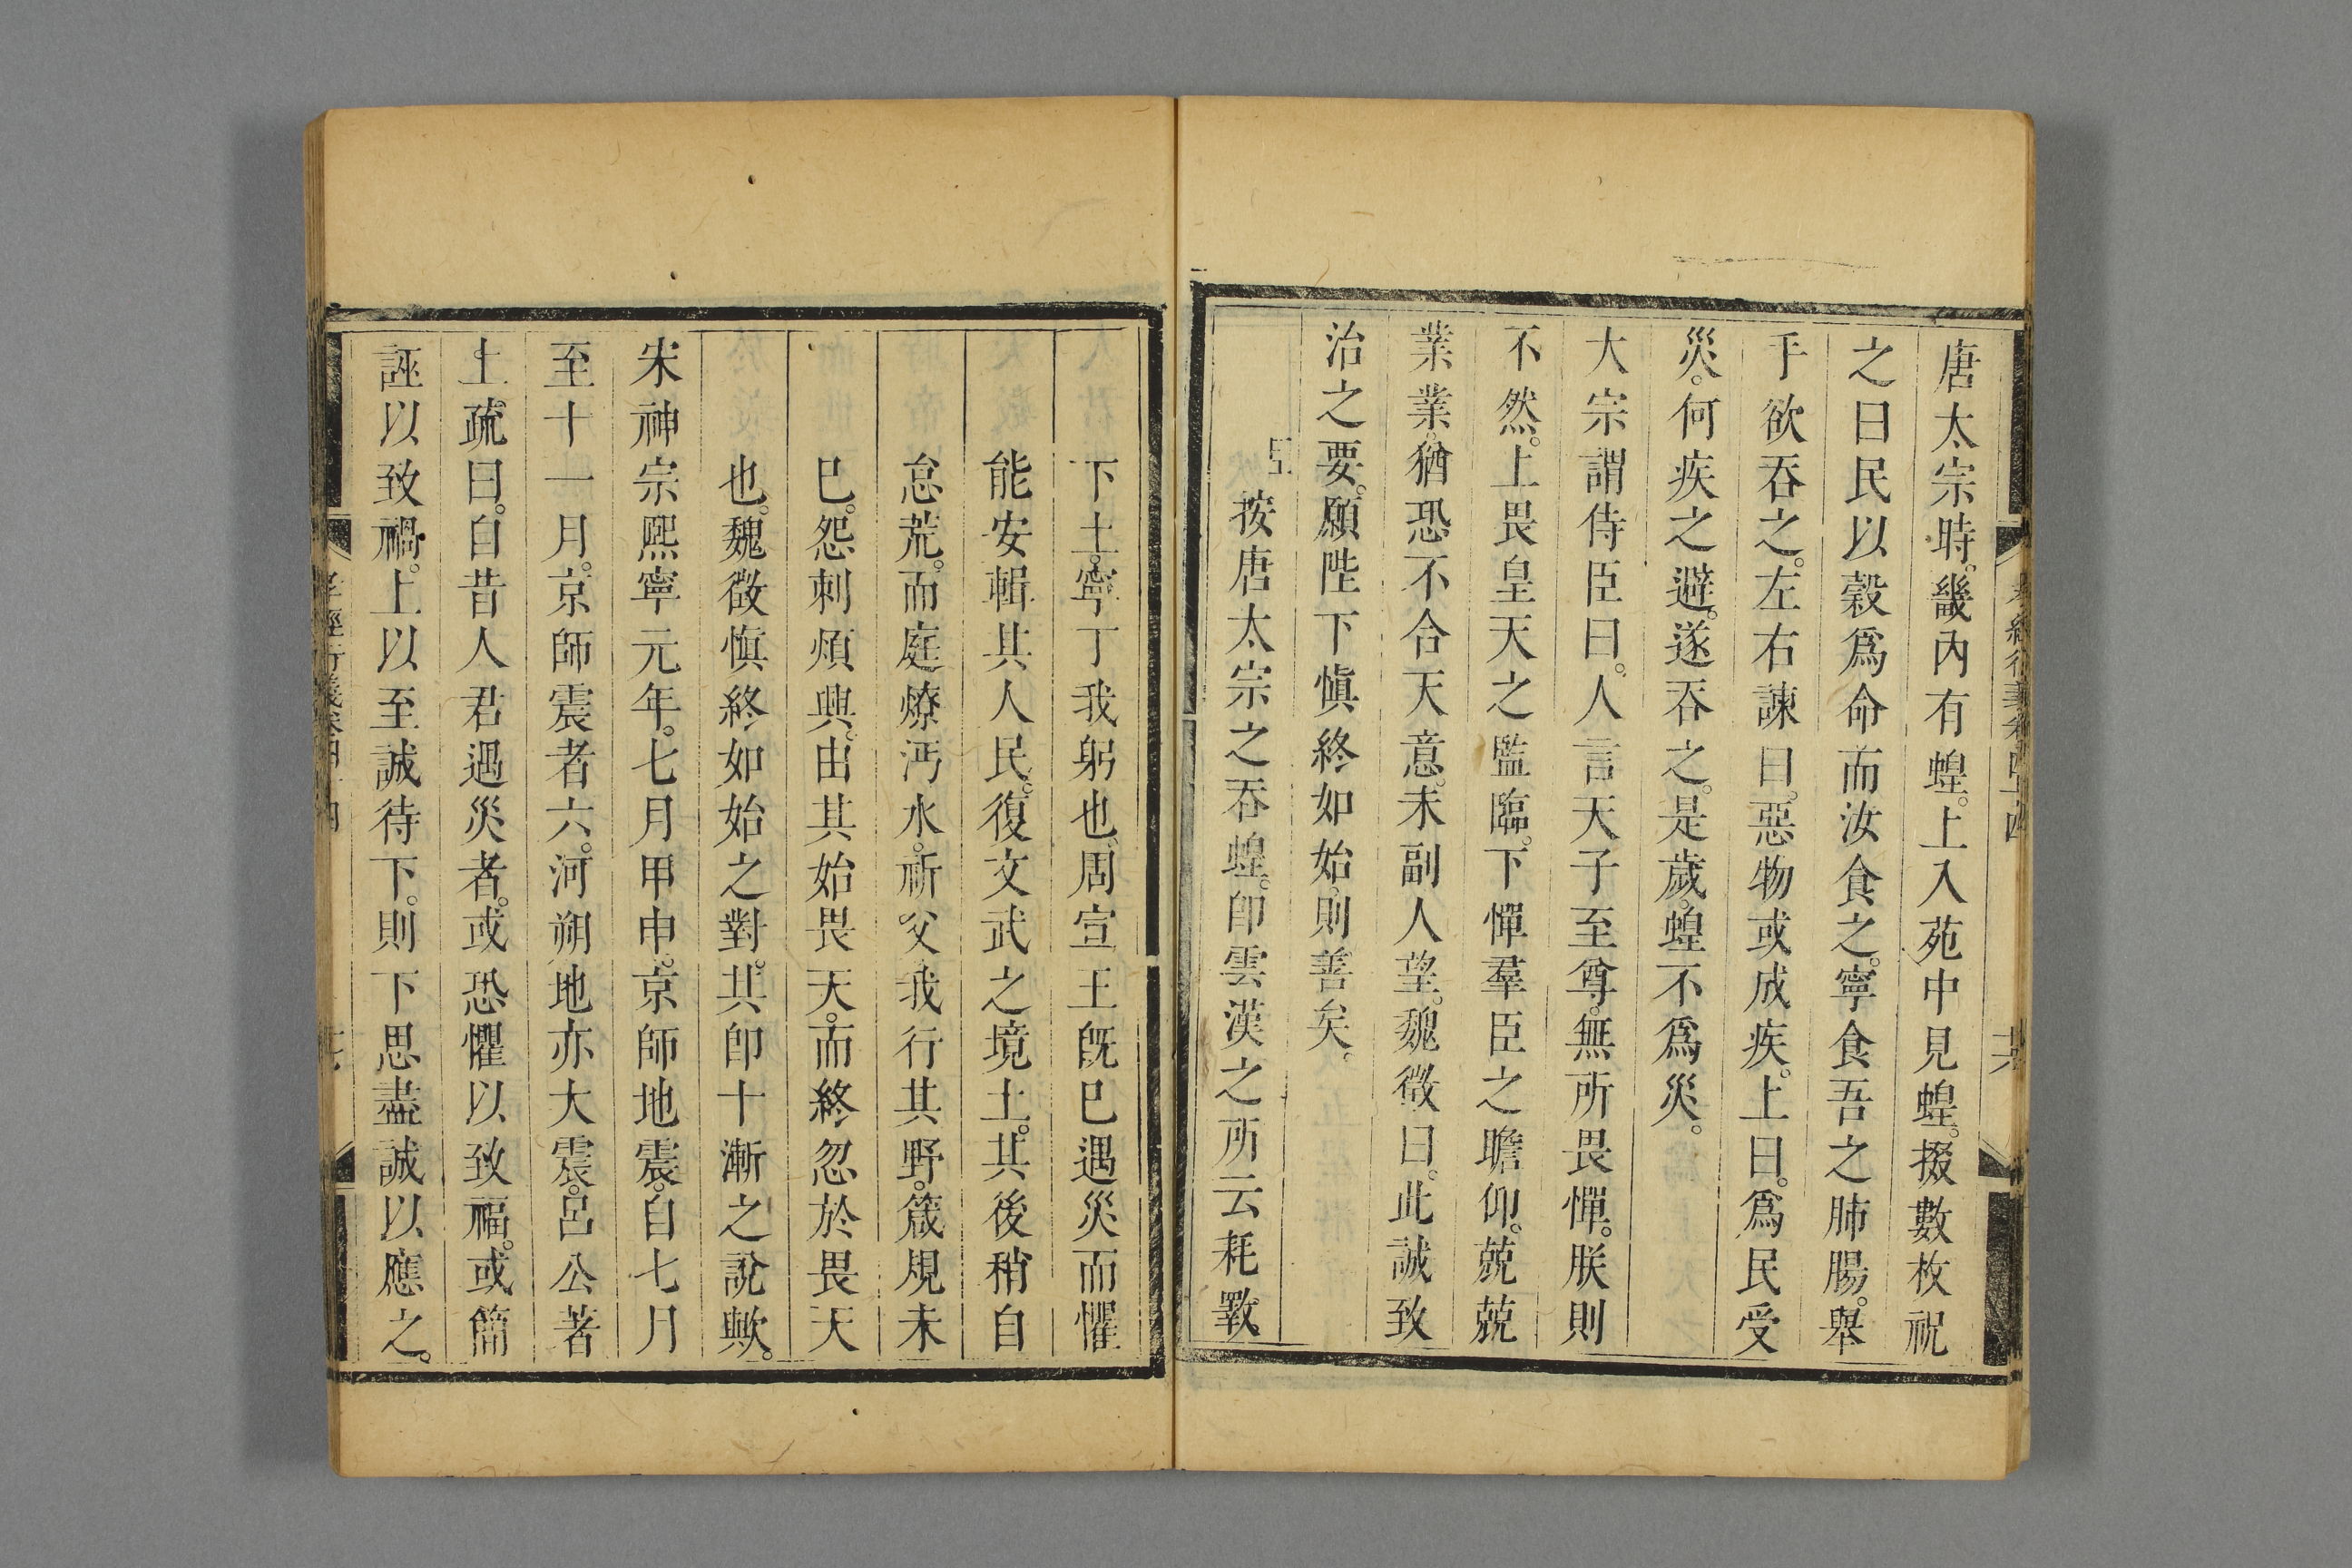 唐太宗時。畿內有蝗。上入苑中見蝗。掇數枚祝
之曰民以穀爲命而汝食之。寧食吾之肺腸。舉
手欲吞之。左右諫曰。惡物或成疾。上曰。爲民受
災。何疾之避。遂吞之。是歲。蝗不爲災。
大宗謂侍臣曰。人言天子至尊。無所畏憚。朕則
不然。上畏皇天之監臨。下憚羣臣之瞻仰。兢兢
業業。猶恐不合天意。未副人望。魏徵曰。此誠致
治之要。願陛下慎終如始。則善矣。
按唐太宗之吞蝗。卽雲漢之所云耗斁
下土。寧丁我躬也。周宣王旣已遇災而懼
能安輯其人民。復文武之境土。其後稍自
怠荒。而庭燎沔水。祈父我行其野。箴規未
已。怨刺煩興。由其始畏天。而終忽於畏天
也。魏徵慎終如始之對。其卽十漸之說歟。
宋神宗熙寧元年。七月甲申。京師地震。自七月
至十一月。京師震者六。河朔地亦大震。呂公著
上疏曰。自昔人君遇災者。或恐懼以致福。或簡
誣以致禍。上以至誠待下。則下思盡誠以應之。